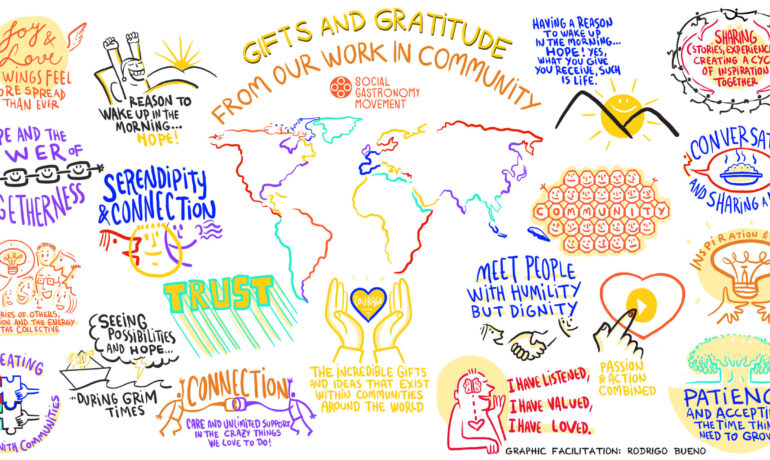 GIFTS AND GRATITUDE
FROM OUR WORK IN COMMUNITY
SOCIAL
GASTRONOMY
MOVEMENT
JOY &
LOVE
WINGS FEEL
ORE SPREAD
THAN EVER
REASON TO
WAKE UP IN THE
MORNING...
HOPE!
HAVING A REASON
TO WAKE UP
IN THE MORNING...
HOPE! YES,
WHAT YOU
GIVE YOU
RECEIVE, SUCH
IS LIFE.
SHARING
(STORIES, EXPERIENC
CREATING A CYC
OF INSPIRATION
TOGETHER
PE AND THE
WER OF
GETHERNESS
SERENDIPITY
& CONNECTION
COMMUNITY
CONVERSAT
AND SHARING A
RIES OF OTHERS,
ION AND THE ENERGY
THE COLLECTIVE
TRUST
COURAGE
MEET PEOPLE
WITH HUMILITY
BUT DIGNITY
INSPIRATION &
SEEING
POSSIBILITIES
AND HOPE...
...DURING GRIM
TIMES
THE INCREDIBLE GIFTS
AND IDEAS THAT EXIST
WITHIN COMMUNITIES
AROUND THE WORLD
PASSION
& ACTION
COMBINED
EATING
WITH COMMUNITIES
CONNECTION
CARE AND UNLIMITED SUPPORT
IN THE CRAZY THINGS
WE LOVE TO DO!
I HAVE LISTENED,
I HAVE VALUED,
I HAVE LOVED.
PATIENC
AND ACCEPTI
THE TIME THIN
NEED TO GROW
GRAPHIC FACILITATION: RODRIGO BUENO